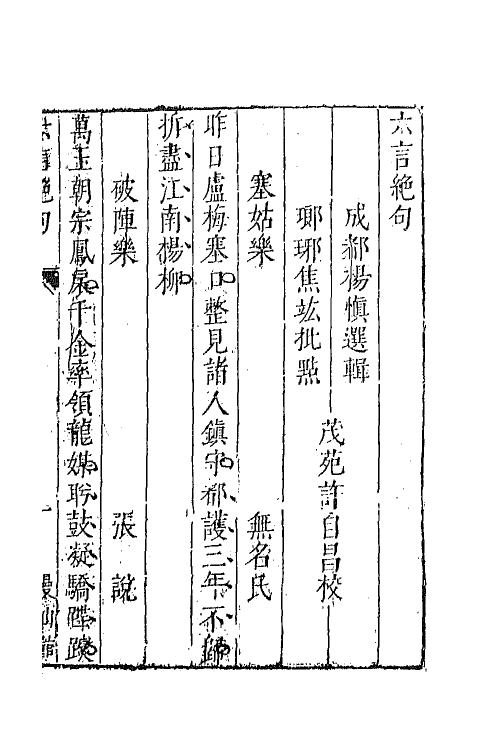 六言絶句
成都楊慎選輯
瑯琊焦竑批點
茂苑許自昌校
塞姑樂 無名氏
昨日盧梅塞口整見諸人鎮守都護三年不歸
折盡江南楊柳
破陣樂 張說
萬玉朝宗鳳扆千金率領龍媒聆鼓凝驕躞蹀
絶句 一